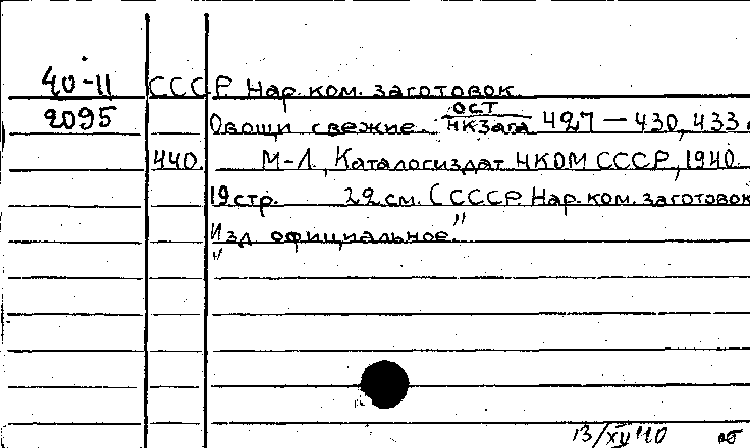 40-11 СССР. Нар. ком. заготовок.
2095 Овощи свежие. ОСТ/НКЗаг 427 — 430, 433
440. М-Л., Каталогиздат НКОМ СССР, 1940.
19 стр. 22 см. (СССР. Нар. ком. заготовок
"Изд. официальное."
13/XII 40